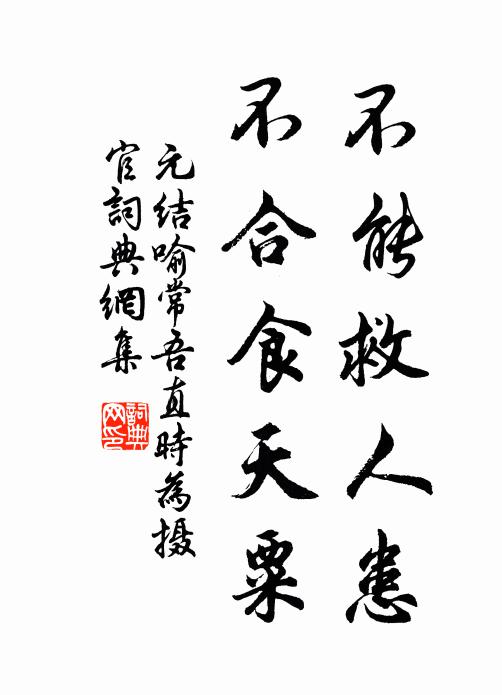 不能救人患
不合食天粟
元结喻常吾直時為摄
官詞典網集
詞典
网印